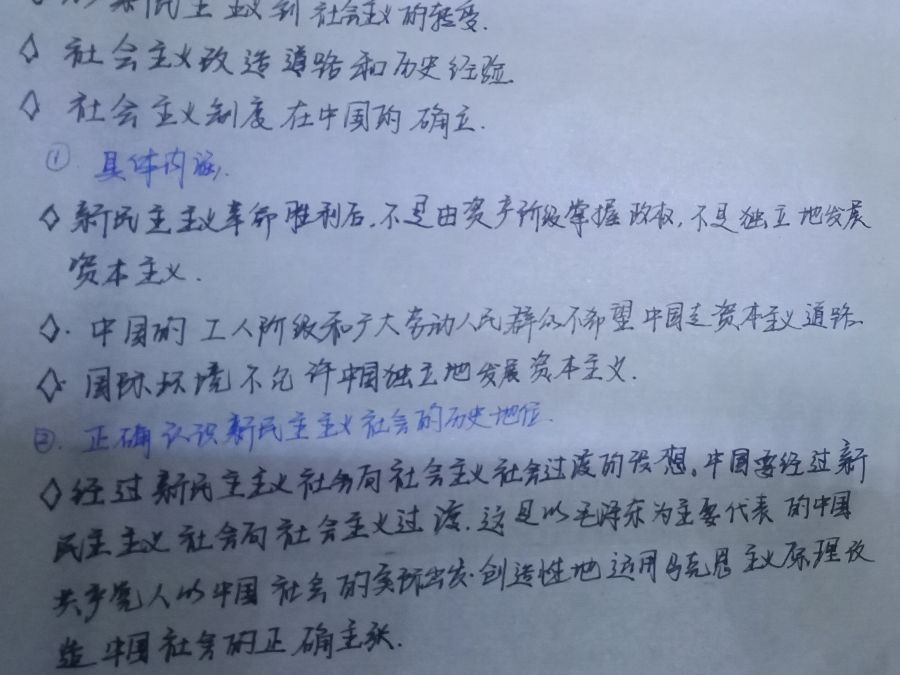 新民主主义到社会主义的转变.
◇ 社会主义改造道路和历史经验.
◇ 社会主义制度在中国的确立.
① 具体内涵.
◇ 新民主主义革命胜利后,不是由资产阶级掌握政权,不是独立地发展
资本主义.
◇. 中国的工人阶级和广大劳动人民群众不希望中国走资本主义道路.
◇. 国际环境不允许中国独立地发展资本主义.
②. 正确认识新民主主义社会的历史地位.
◇ 经过新民主主义社会向社会主义社会过渡的设想。中国要经过新
民主主义社会向社会主义过渡.这是以毛泽东为主要代表的中国
共产党人从中国社会的实际出发.创造性地运用马克思主义原理改
造中国社会的正确主张.